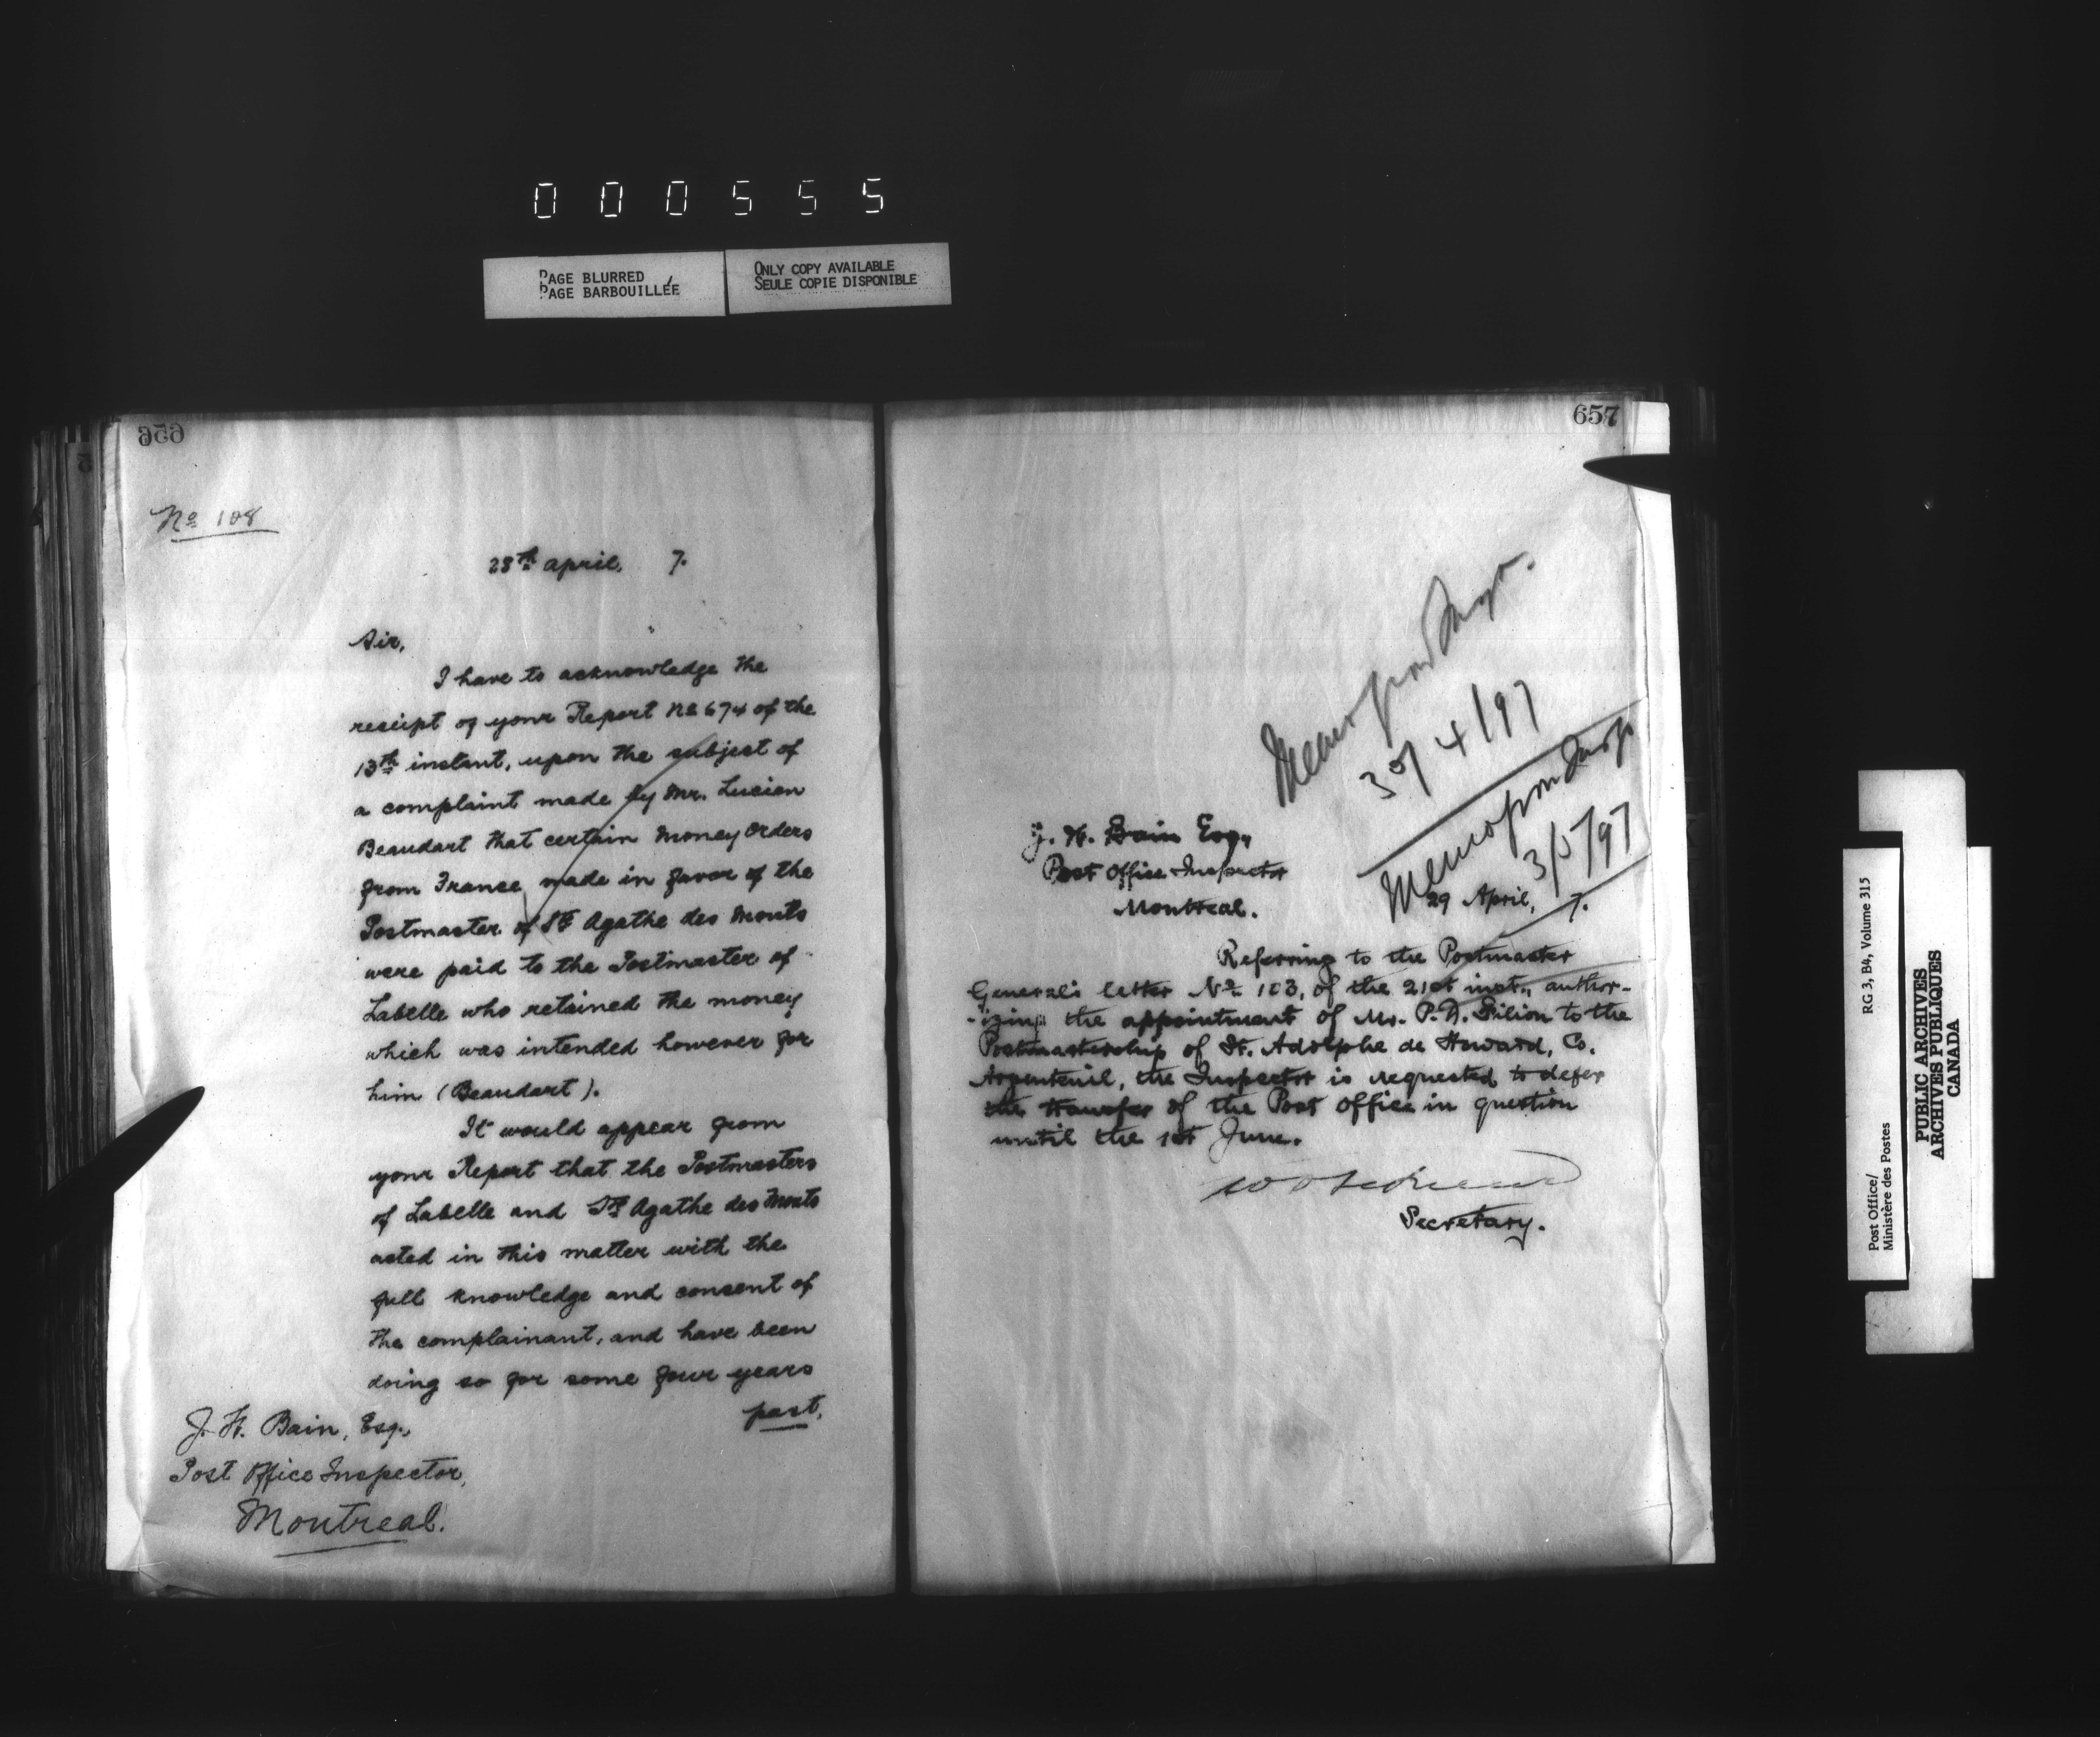 000555
PAGE BLURRED
PAGE BARBOUILLÉE
ONLY COPY AVAILABLE
SEULE COPIE DISPONIBLE
656
No 108
28th April, 7.
Sir,
I have to acknowledge the
receipt of your Report No 674 of the
13th instant, upon the subject of
a complaint made by Mr. Lucien
Beaudart that certain Money Orders
from France made in favor of the
Postmaster of Ste Agathe des Monts
were paid to the Postmaster of
Labelle who retained the money
which was intended however for
him (Beaudart).
It would appear from
your Report that the Postmasters
of Labelle and Ste Agathe des Monts
acted in this matter with the
full knowledge and consent of
the complainant, and have been
doing so for some four years
past,
J. H. Bain, Esq.,
Post Office Inspector,
Montreal.
657
Memo from Insp.
30/4/97
Memo from Insp
3/5/97
J. H. Bain Esq,
Post Office Inspector
Montreal.
29 April, 7.
Referring to the Postmaster
General's letter No 103, of the 21st inst., author-
-izing the appointment of Mr. P. A. Filion to the
Postmastership of St. Adolphe de Howard, Co.
Argenteuil, the Inspector is requested to defer
the transfer of the Post Office in question
until the 1st June.
Secretary.
Post Office/
Ministère des Postes
RG 3, B4, Volume 315
PUBLIC ARCHIVES
ARCHIVES PUBLIQUES
CANADA